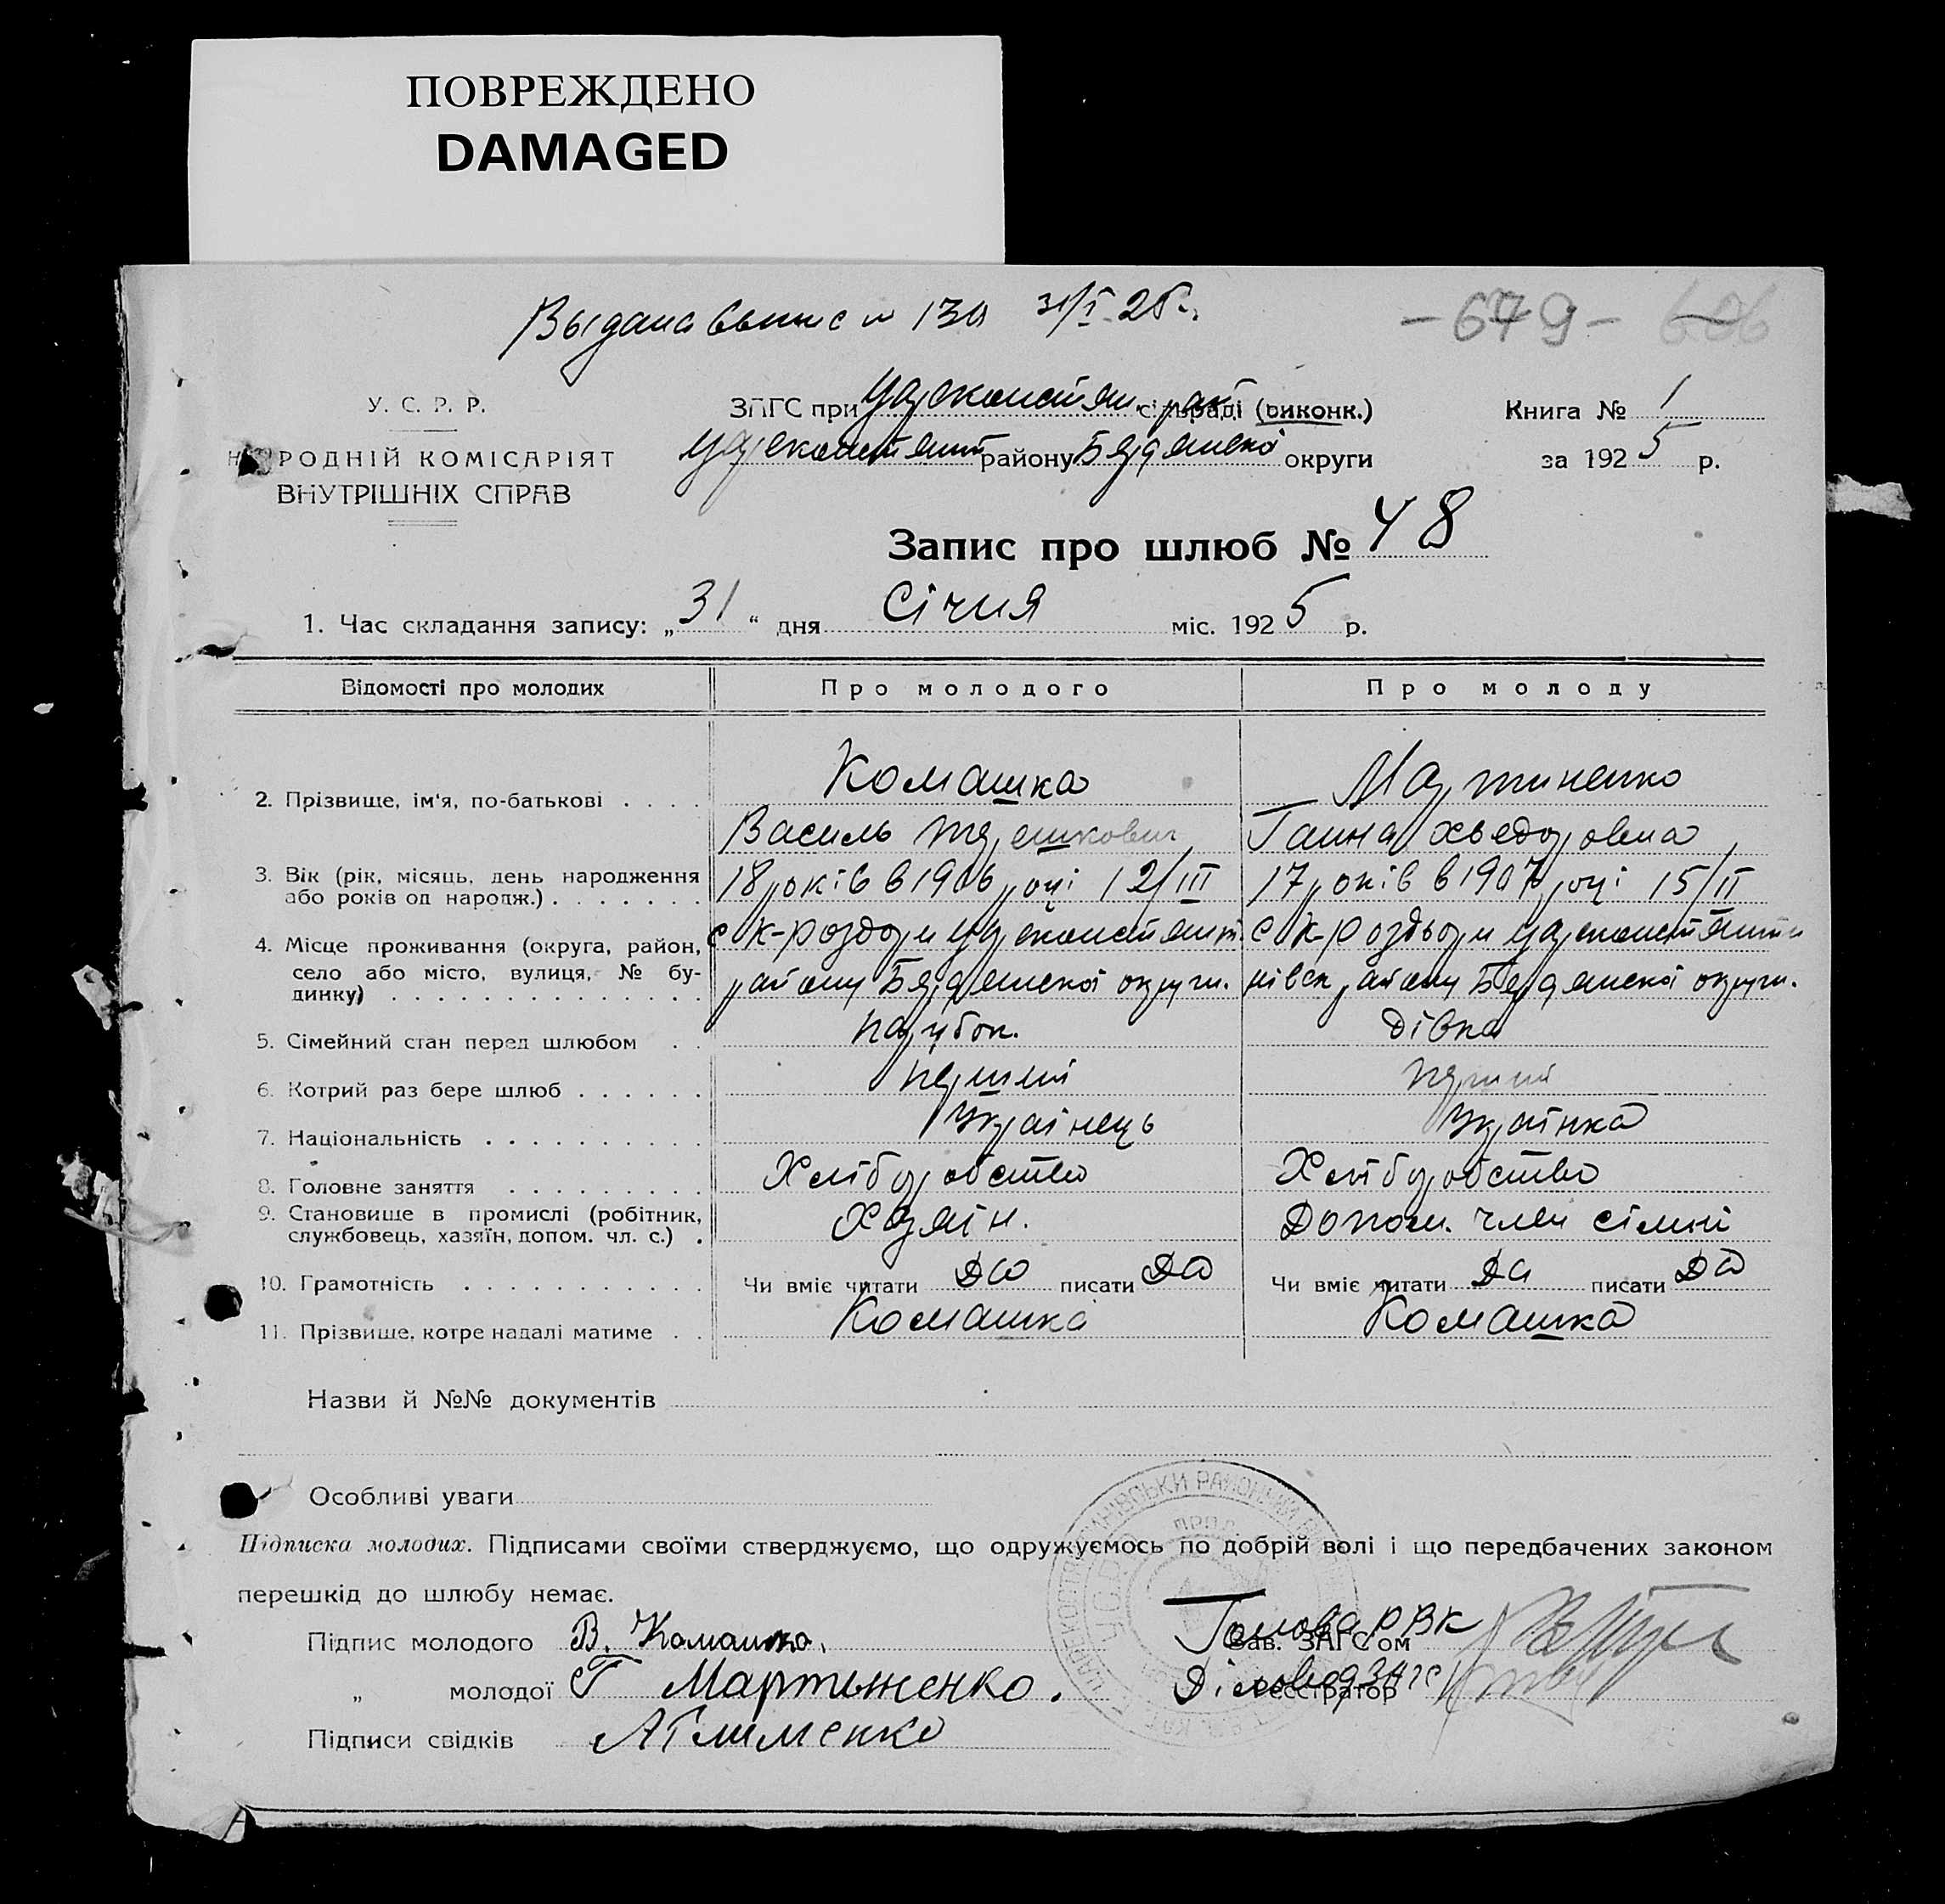 ПОВРЕЖДЕНО
DAMAGED
31/I 25 г.
- 679 -
У. С. Р. Р.
ЗАГС при Цареконстян. рай. сільраді (виконк.)
Книга № 1
НАРОДНІЙ КОМІСАРІЯТ
Цареконстянт району Бердянської округи
за 192 5 р.
ВНУТРІШНІХ СПРАВ
Запис про шлюб № 48
1. Час складання запису: „ 31 “ дня Січня міс. 192 5 р.
Відомості про молодих Про молодого Про молоду
2. Прізвище, ім'я, по-батькові . . . . Комашка Мартиненко
Василь Терешкович Ганна Хьедоровна
3. Вік (рік, місяць, день народження або років од народж.) . . . . . . . 18 років в 1906 році 12/III 17 років в 1907 році 15/II
4. Місце проживання (округа, район, село або місто, вулиця, № будинку) . . . . . . . . . . . . . . с К-роздори Цареконстянт. району Бердянскоі округи. с К-роздори Цареконстянти нівск району Бердянскоі округи.
5. Сімейний стан перед шлюбом . . парубок. дівка
6. Котрий раз бере шлюб . . . . . . перший перший
7. Національність . . . . . . . . . . . Украінець Украінка
8. Головне заняття . . . . . . . . . Хліборобство Хліборобство
9. Становище в промислі (робітник, службовець, хазяїн, допом. чл. с.) . Хазяін. Допом. член сімні
10. Грамотність . . . . . . . . . . . Чи вміє читати Да писати Да Чи вміє читати Да писати Да
11. Прізвище, котре надалі матиме . . Комашка Комашка
Назви й №№ документів
Особливі уваги
Підписка молодих. Підписами своїми стверджуємо, що одружуємось по добрій волі і що передбачених законом
перешкід до шлюбу немає.
Підпис молодого В. Комашка. Голова РВК
Зав. ЗАГС'ом
„ молодої Г Мартыненко. Діловод ЗАГС
Реєстратор
Підписи свідків